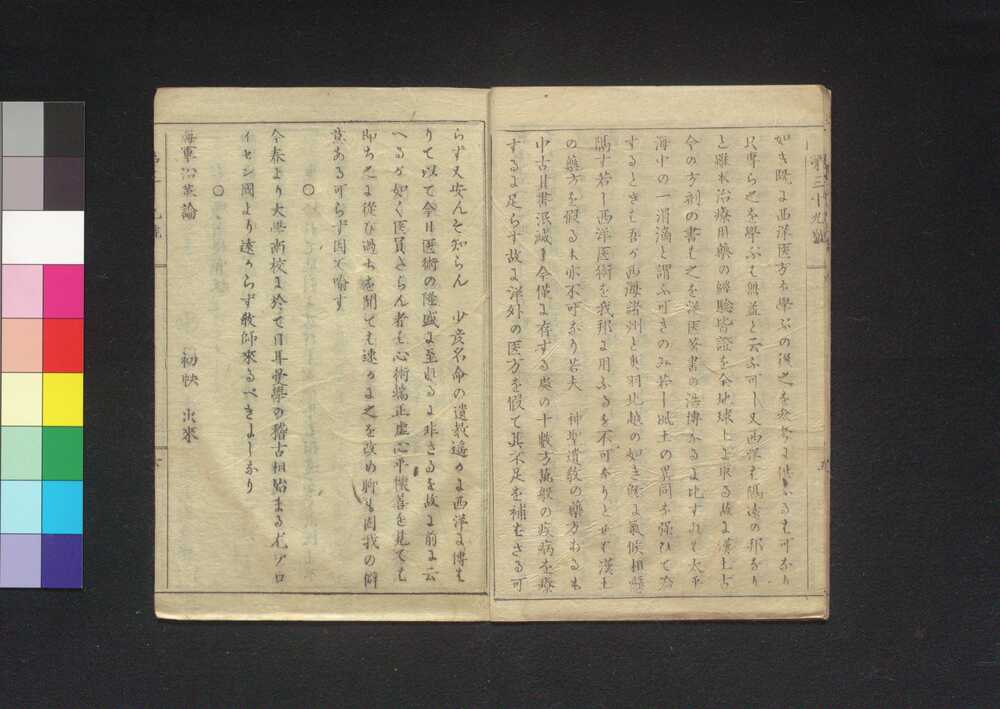 如き既に西洋医方を學ぶの後之を参考に供へるも可なり
只専ら之を學ぶも無益と云ふ可し又西洋は隔遠の邦なり
と雖も治療用藥の經驗皆證を全地球上に取る故に漢土古
今の方劑の書も之を洋医茶書の浩博なるに比すれば太平
海中の一涓滴と謂ふ可きのみ若し風土の異同を強ひて論
するときは吾が西海諸州と奥羽北越の如き既に氣候相懸
隔す若し西洋医術を我邦に用ふるを不可なりとせば漢土
の藥方を假るも亦不可なり若夫 神聖遺教の藥方あるも
中古以來泯滅し今僅に存する處の十數方萬般の疾病を療
するに足らず故に洋外の医方を假て其不足を補はざる可
らず又安んぞ知らん 少彦名命の遺教遙かに西洋に傳は
りて以て今日医術の隆盛に至れるに非ざるを故に前に云
へるが如く医員たらん者は心術端正虚心平懷善を見ても
即ち之に從ひ過ちを聞ても速かに之を改め聊も固我の僻
意ある可らず因て喩す
○
今春より大學南校に於て日耳曼學の稽古相始まる尤アロ
イセン國より遠からず教師來るべきよしなり
○
海軍沿革論 初帙 出來